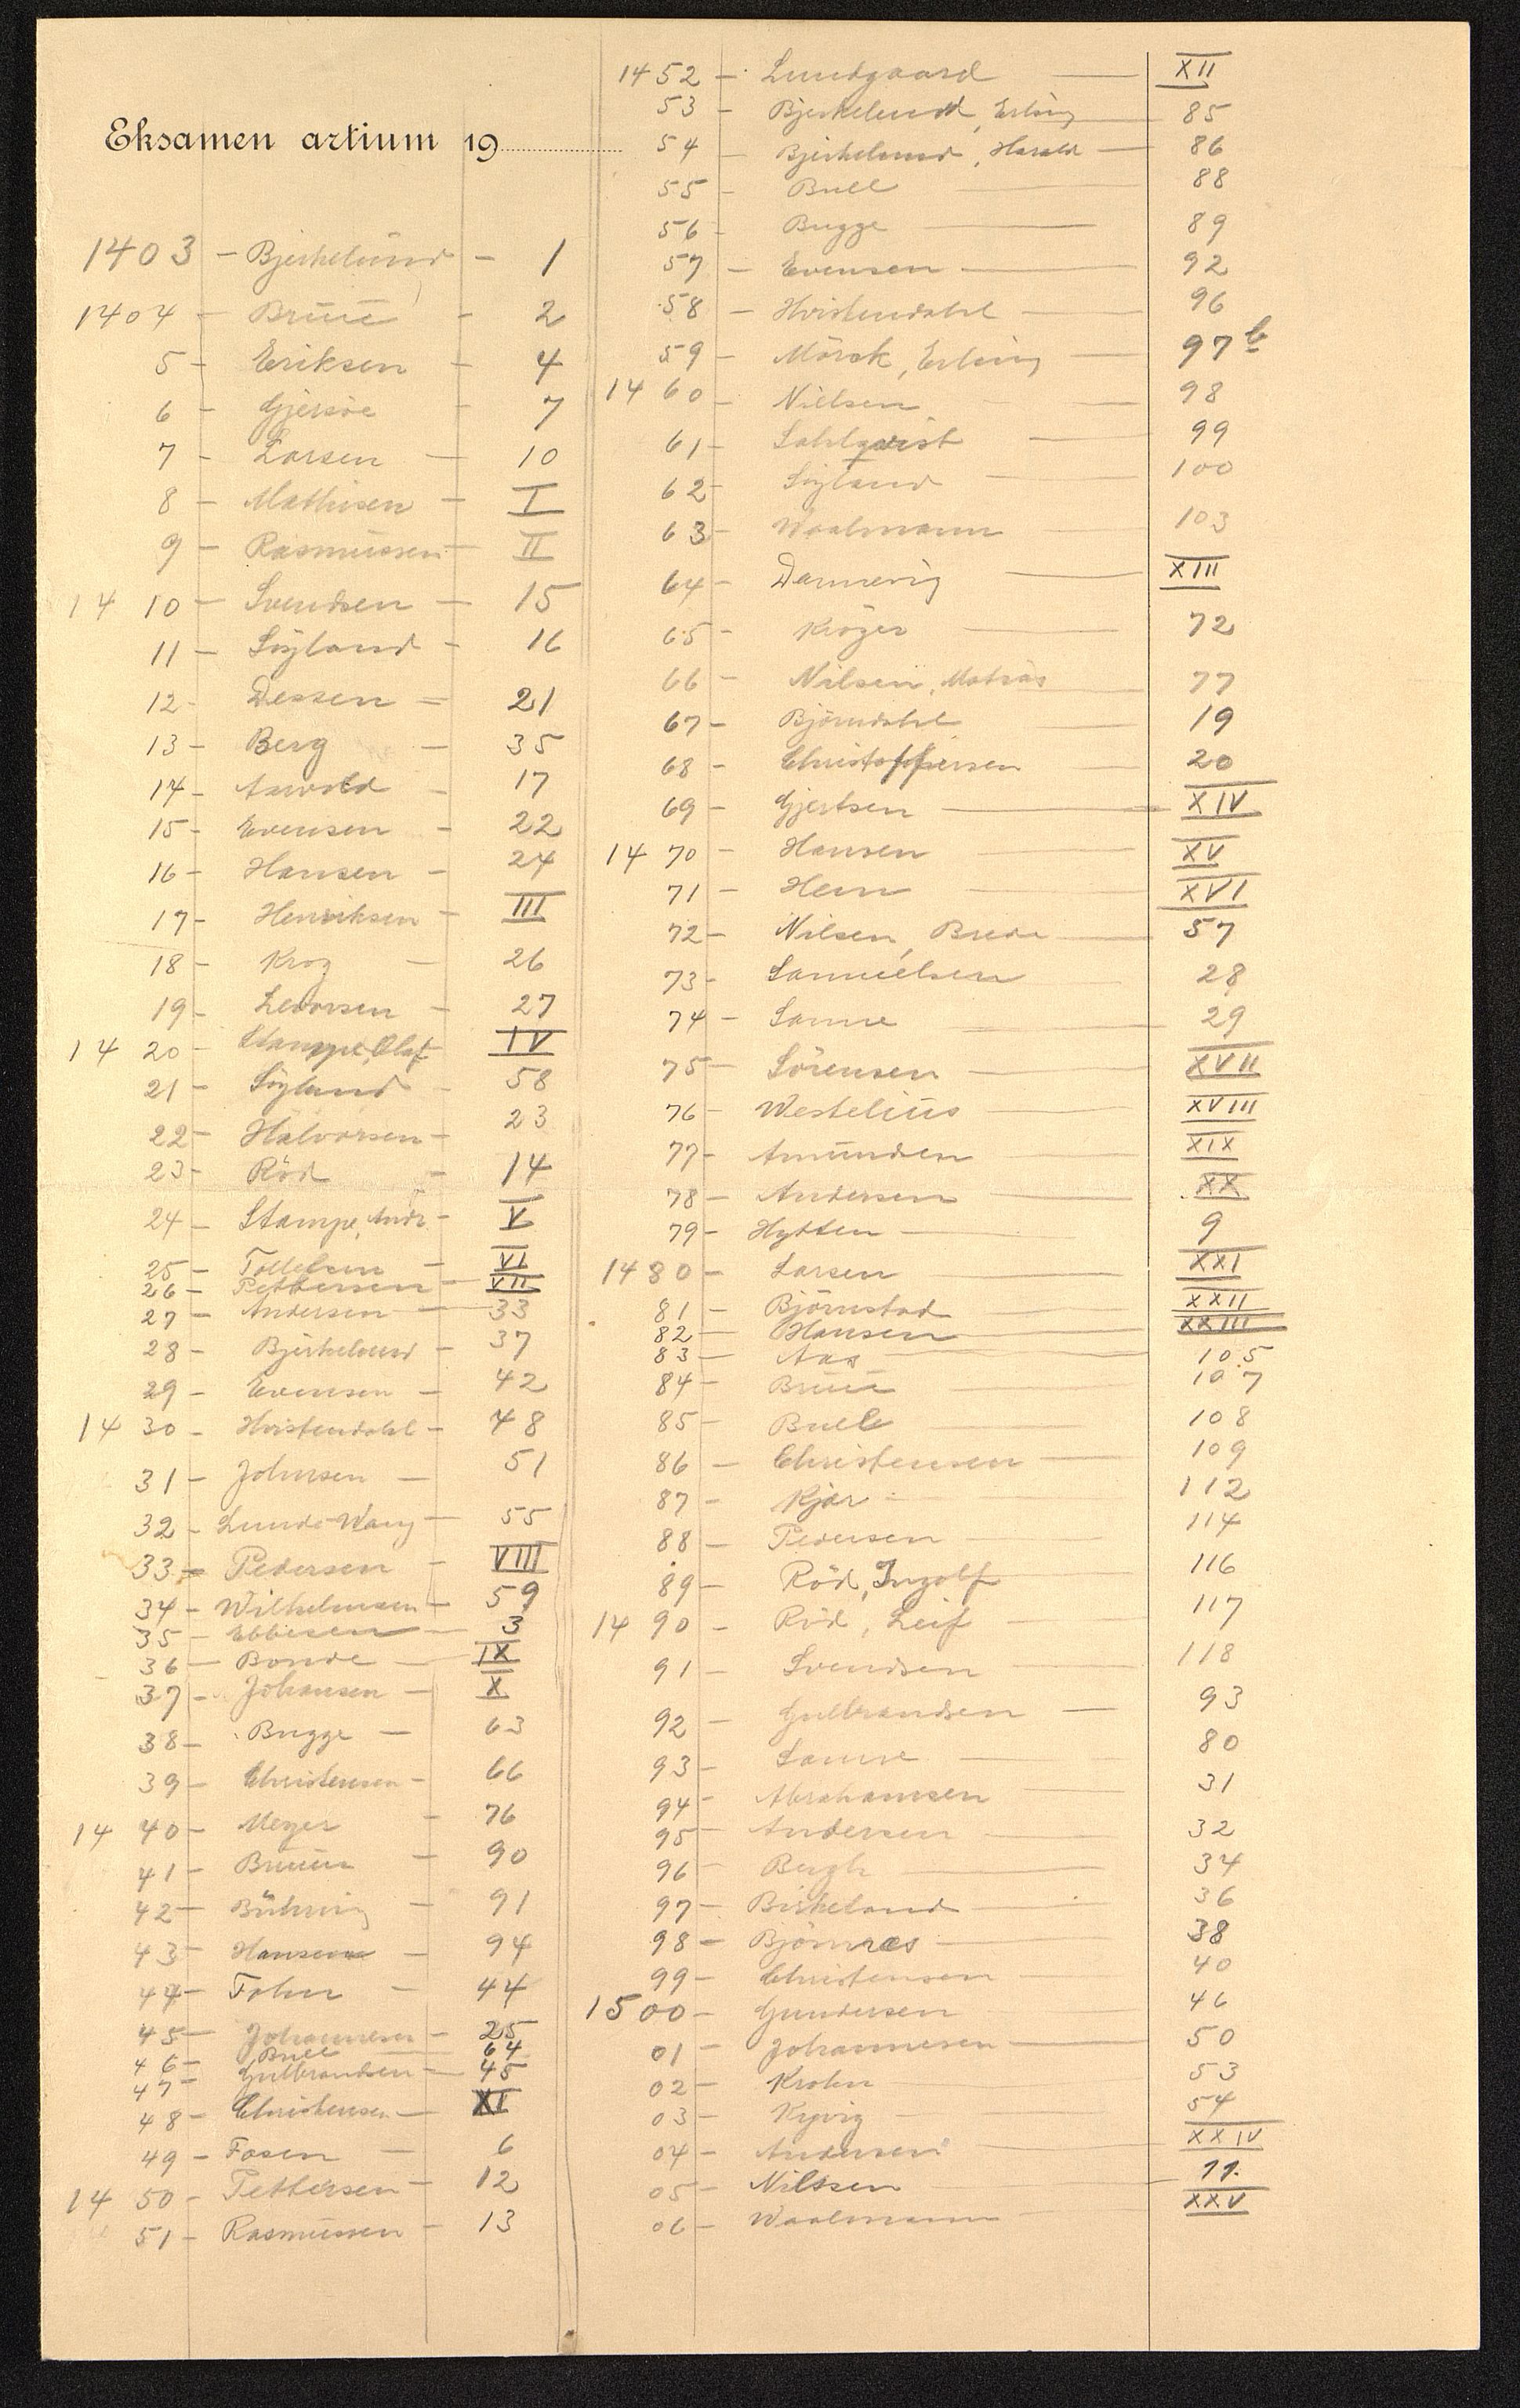 Eksamen artium 19
1403 - Bjerkelund - 1
1404 - Bruu - 2
5 - Eriksen - 4
6 - Gjersöe - 7
7 - Larsen - 10
8 - Mathisen - I
9 - Rasmussen - II
14 10 - Svendsen - 15
11 - Söyland - 16
12 - Dessen - 21
13 - Berg - 35
14 - Axwold - 17
15 - Evensen - 22
16 - Hansen - 24
17 - Henriksen - III
18 - Krog - 26
19 - Levorsen - 27
14 20 - Stamppe, Olaf IV
21 - Söyland - 58
22 - Halvorsen - 23
23 - Röd - 14
24 - Stampe, Andr. - V
25 - Tollefsen - VI
26 - Pettersen - VII
27 - Andersen - 33
28 - Bjerkelund - 37
29 - Evensen - 42
14 30 - Hvistendahl - 48
31 - Johnsen - 51
32 - Lund-Wang - 55
33 - Pedersen - VIII
34 - Wilhelmsen - 59
35 - Ebbesen - 3
36 - Bonde - IX
37 - Johansen - X
38 - Bugge - 63
39 - Christensen - 66
14 40 - Meyer - 76
41 - Bruun - 90
42 - Bühring - 91
43 - Hansen - 94
44 - Falun - 44
45 - Johannesen - 25
46 - Bull - 64
47 - Gulbrandsen - 45
48 - Christensen - XI
49 - Fosen - 6
14 50 - Pettersen - 12
51 - Rasmussen - 13
1452 - Lundgaard - XII
53 - Bjerkelund, Erling - 85
54 - Bjerkelund, Harald - 86
55 - Bull - 88
56 - Bugge - 89
57 - Evensen - 92
58 - Hvistendahl - 96
59 - Mörck, Erling - 97 b
14 60 - Nielsen - 98
61 - Sahlqvist - 99
62 - Söyland - 100
63 - Waalmann - 103
64 - Dannevig - XIII
65 - Kröger - 72
66 - Nilsen, Matias - 77
67 - Björndahl - 19
68 - Christoffersen - 20
69 - Gjertsen - XIV
14 70 - Hansen - XV
71 - Hem - XVI
72 - Nilsen, Brede - 57
73 - Samuelsen - 28
74 - Sanne - 29
75 - Sörensen - XVII
76 - Westelius - XVIII
77 - Amundsen - XIX
78 - Andersen - XX
79 - Hytten - 9
1480 - Larsen - XXI
81 - Björnstad - XXII
82 - Hansen - XXIII
83 - Aas - 105
84 - Bruu - 107
85 - Bull - 108
86 - Christensen - 109
87 - Kjær - 112
88 - Pedersen - 114
89 - Röd, Ingolf - 116
14 90 - Röd, Leif - 117
91 - Svendsen - 118
92 - Gulbrandsen - 93
93 - Sanne - 80
94 - Abrahamsen - 31
95 - Andersen - 32
96 - Bergh - 34
97 - Birkeland - 36
98 - Björnnes - 38
99 - Christensen - 40
1500 - Gundersen - 46
01 - Johannesen - 50
02 - Krohn - 53
03 - Kyvig - 54
04 - Andersen - XXIV
05 - Nilssen - 11.
06 - Waalmann - XXV